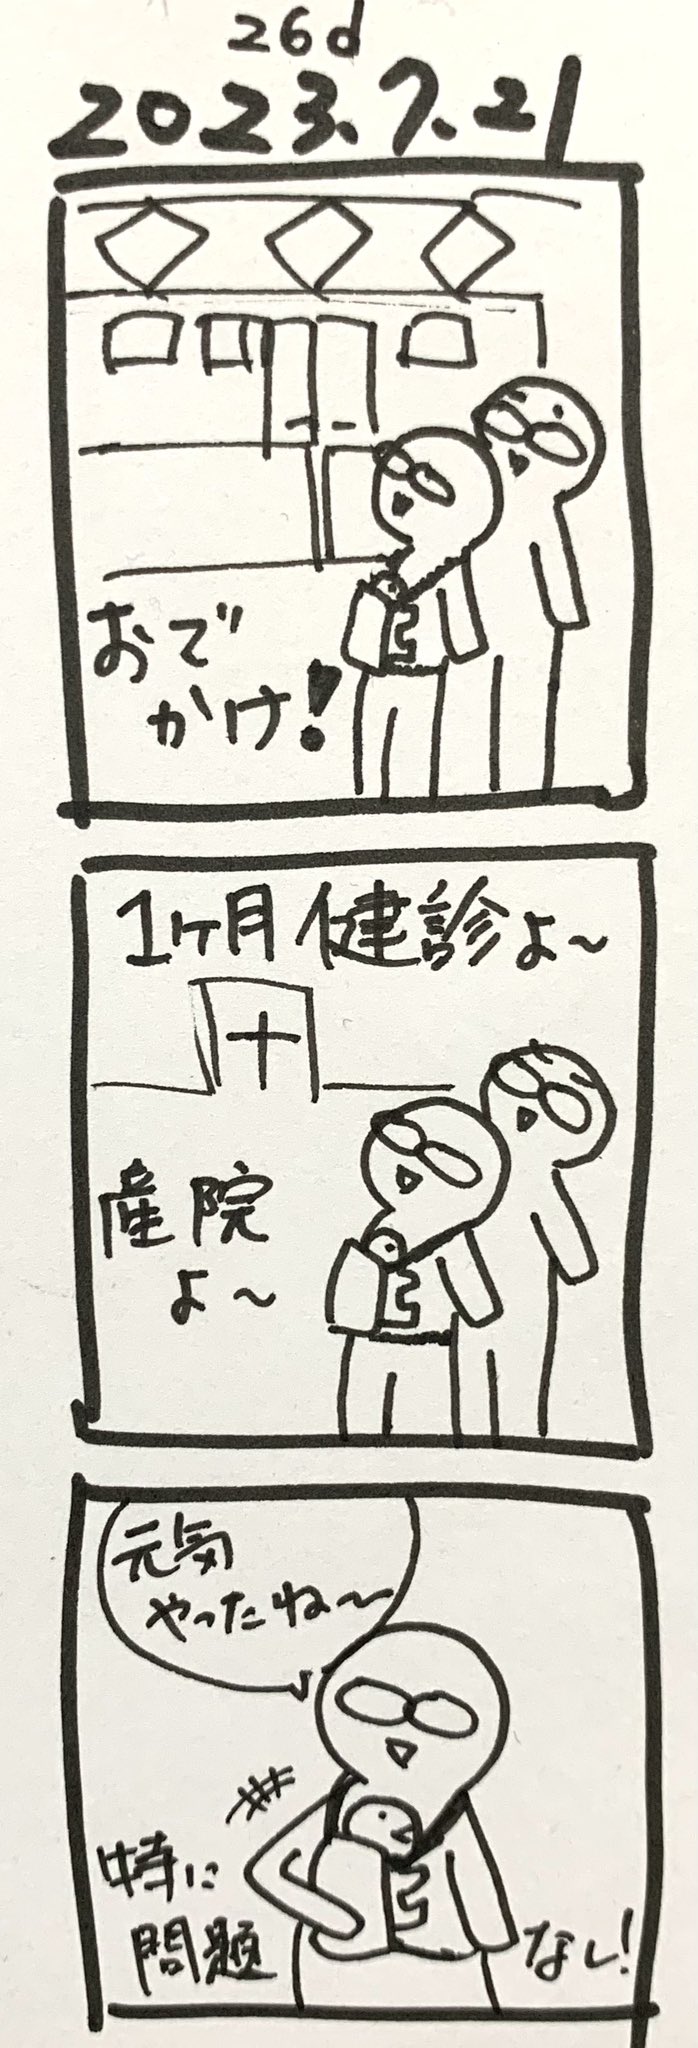 26d
2023.7.21
おで
かけ！
1ヶ月健診よ～
産院
よ～
元気
やったね～
特に
問題
なし！